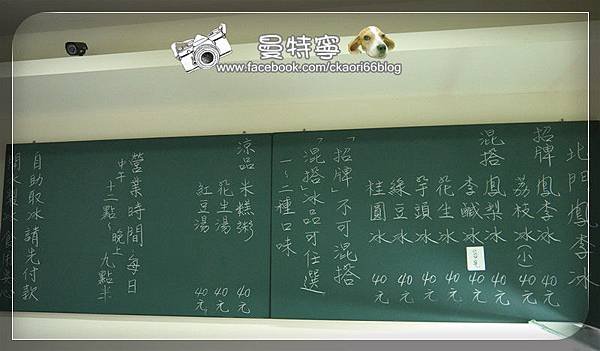 曼特寧
www.facebook.com/ckaori66blog
北門鳳李冰
招牌 鳳李冰 40元
荔枝冰(小) 40元
混搭 鳳梨冰 40元
李鹹冰
花生冰 40元
芋頭冰 40元
綠豆冰 40元
桂圓冰 40元
「招牌」不可混搭
「混搭」冰品可任選
一~二種口味
涼品 米糕粥 40元
花生湯 40元
紅豆湯 40元
營業時間 每日
中午十二點~晚上九點半
自助取冰請先付款